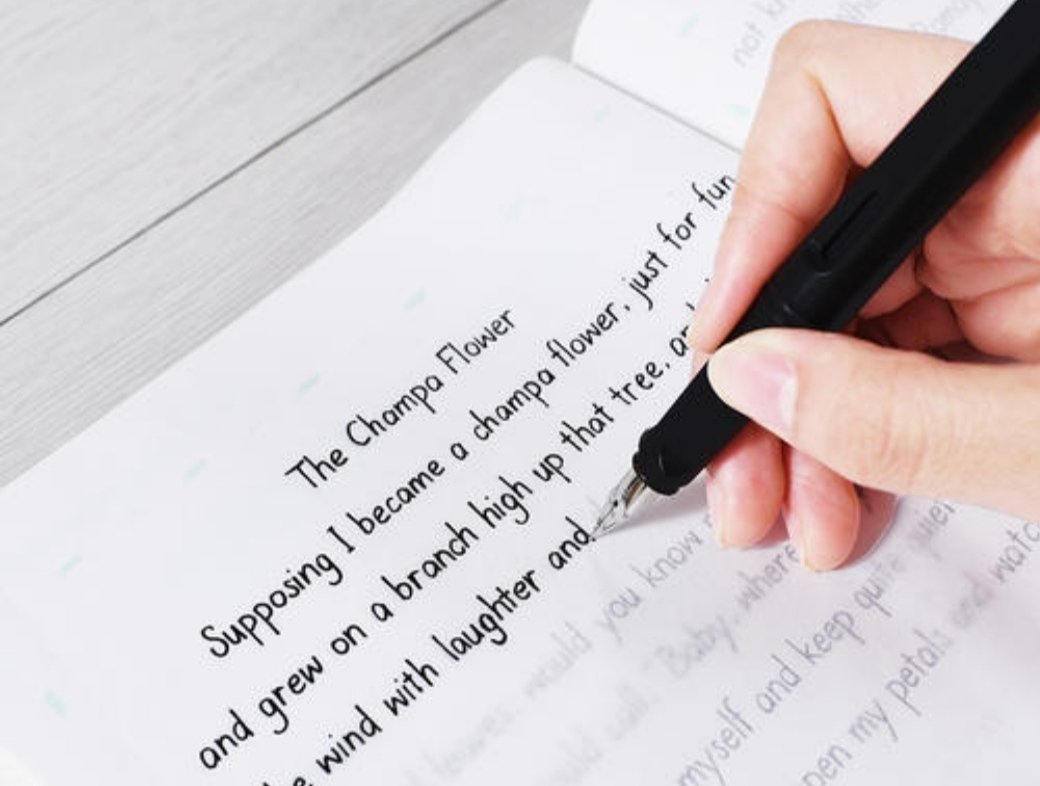 not
The Champa Flower
Supposing I became a champa flower, just for fun,
and grew on a branch high up that tree, and
wind with laughter and
leaves, would you know
would call, "Baby, where
myself and keep quite quiet
open my petals and watch